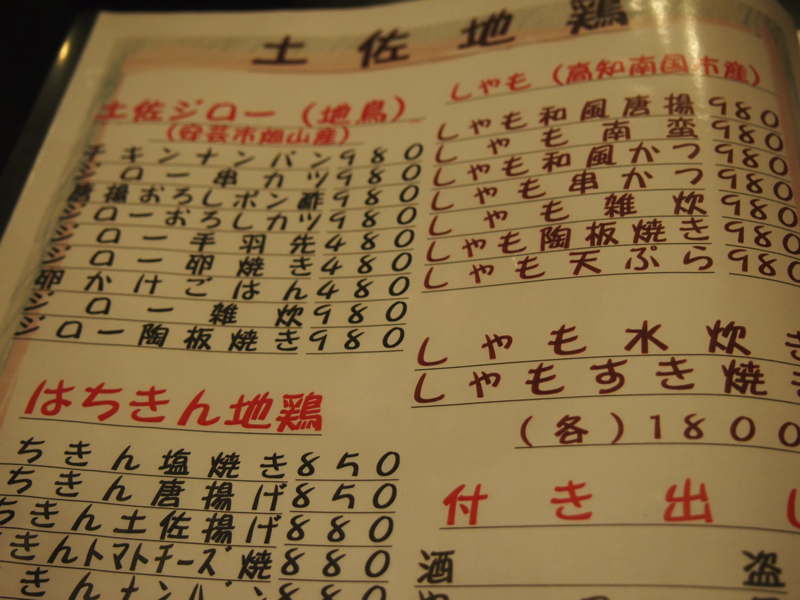 土佐地鶏
土佐ジロー（地鳥）
（安芸市畑山産）
チキンナンバン980
ジロー串カツ980
唐揚おろしポン酢980
ジローおろしカツ980
ジロー手羽先480
ジロー卵焼き480
卵かけごはん480
ジロー雑炊980
ジロー陶板焼き980
はちきん地鶏
ちきん塩焼き850
ちきん唐揚げ850
ちきん土佐揚げ880
きんトマトチーズ焼880
きんナンバン880
しゃも（高知南国市産）
しゃも和風唐揚980
しゃも南蛮980
しゃも和風かつ980
しゃも串かつ980
しゃも雑炊980
しゃも陶板焼き980
しゃも天ぷら980
しゃも水炊き
しゃもすき焼き
（各）1800
付き出し
酒盗